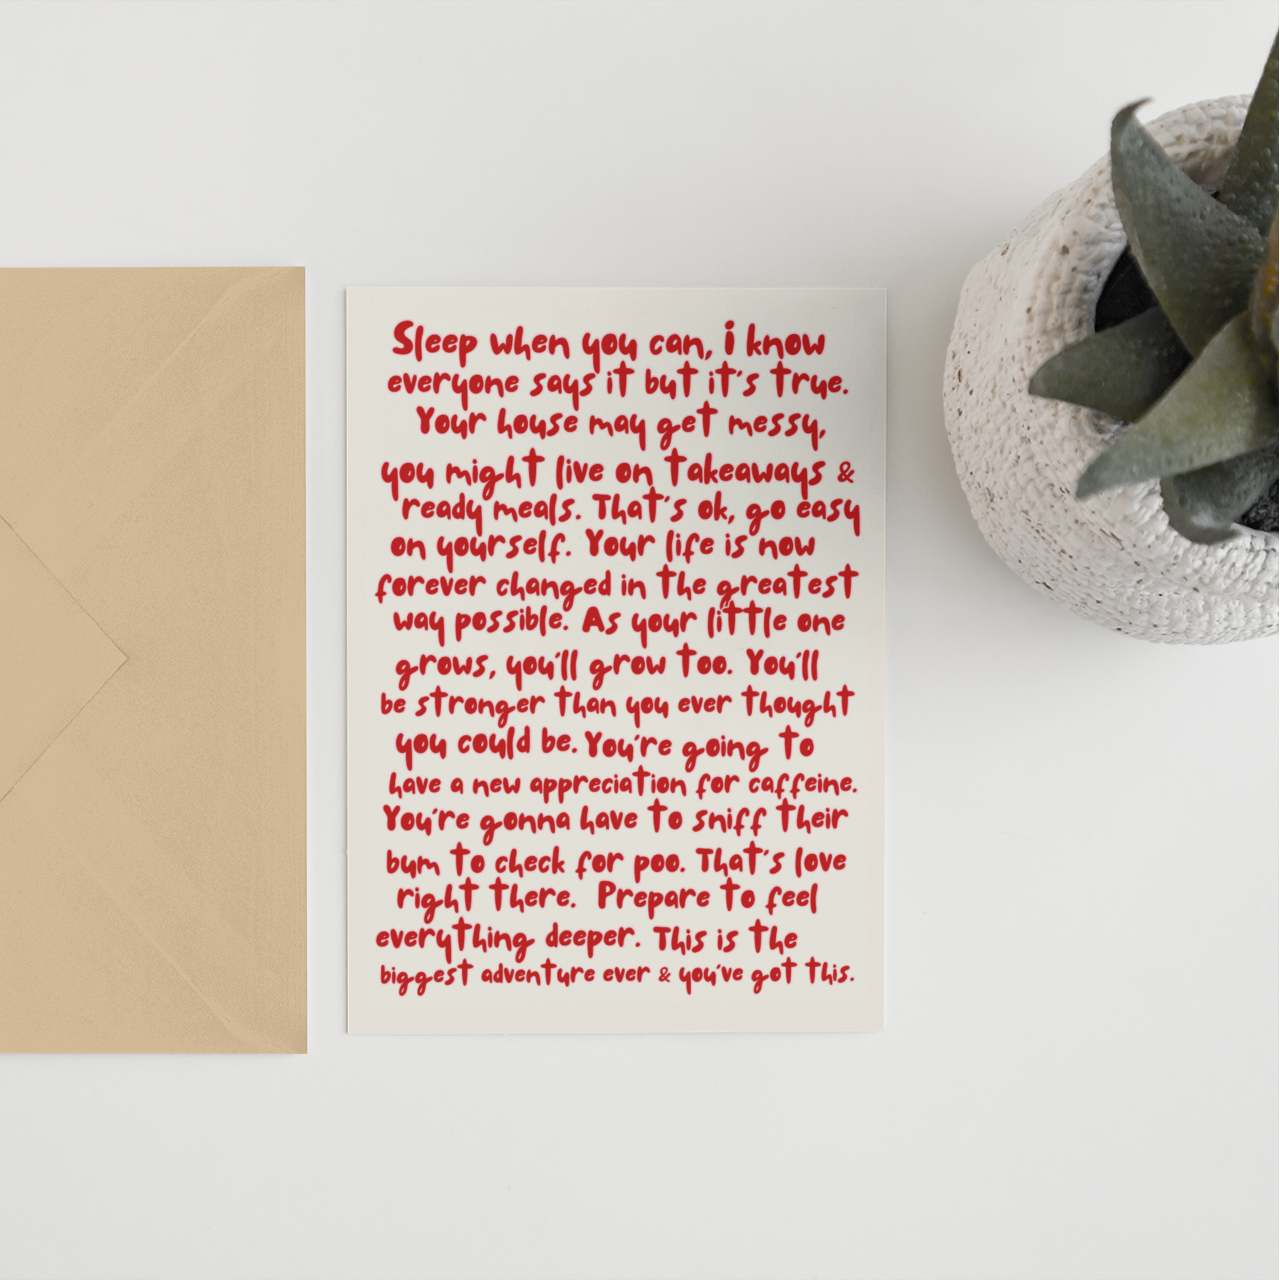 Sleep when you can, i know
everyone says it but it's true.
Your house may get messy,
you might live on takeaways &
ready meals. That's ok, go easy
on yourself. Your life is now
forever changed in the greatest
way possible. As your little one
grows, you'll grow too. You'll
be stronger than you ever thought
you could be. You're going to
have a new appreciation for caffeine.
You're gonna have to sniff their
bum to check for poo. That's love
right there. Prepare to feel
everything deeper. This is the
biggest adventure ever & you've got this.